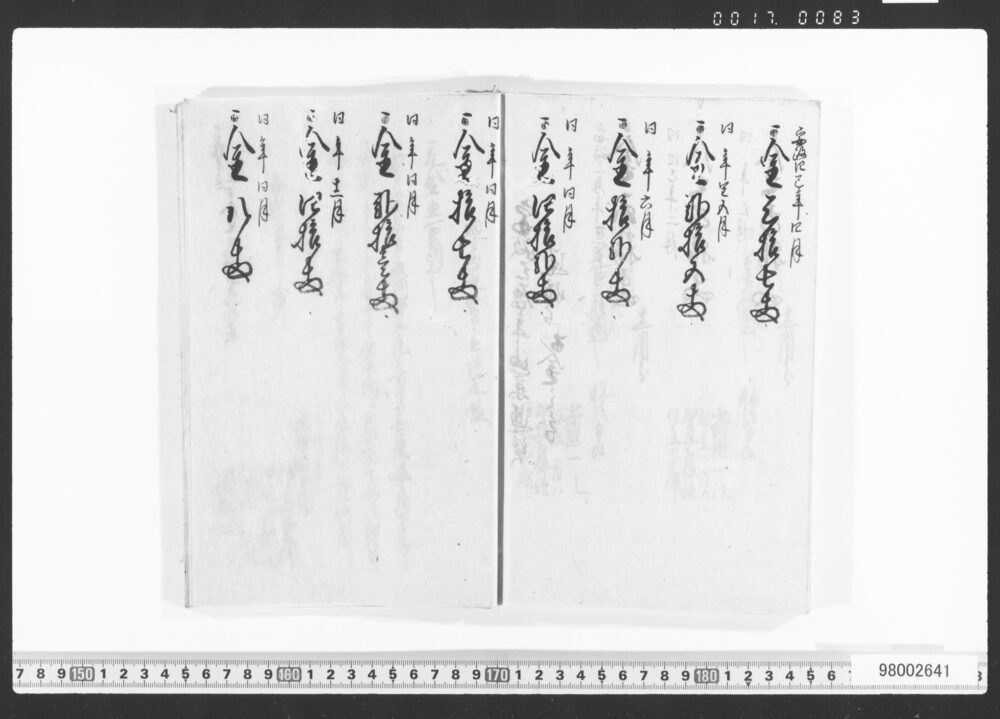 安政四巳年四月
一金三拾七両
同年閏五月
一金弐拾五両
同年六月
一金拾弐両
同年同月
一金四拾弐両
同年同月
一金拾七両
同年同月
一金弐拾壱両
同年十一月
一金四拾両
同年同月
一金八両
0017. 0083
7 8 9 150 1 2 3 4 5 6 7 8 9 160 1 2 3 4 5 6 7 8 9 170 1 2 3 4 5 6 7 8 9 180 1 2 3 4 5 6
98002641